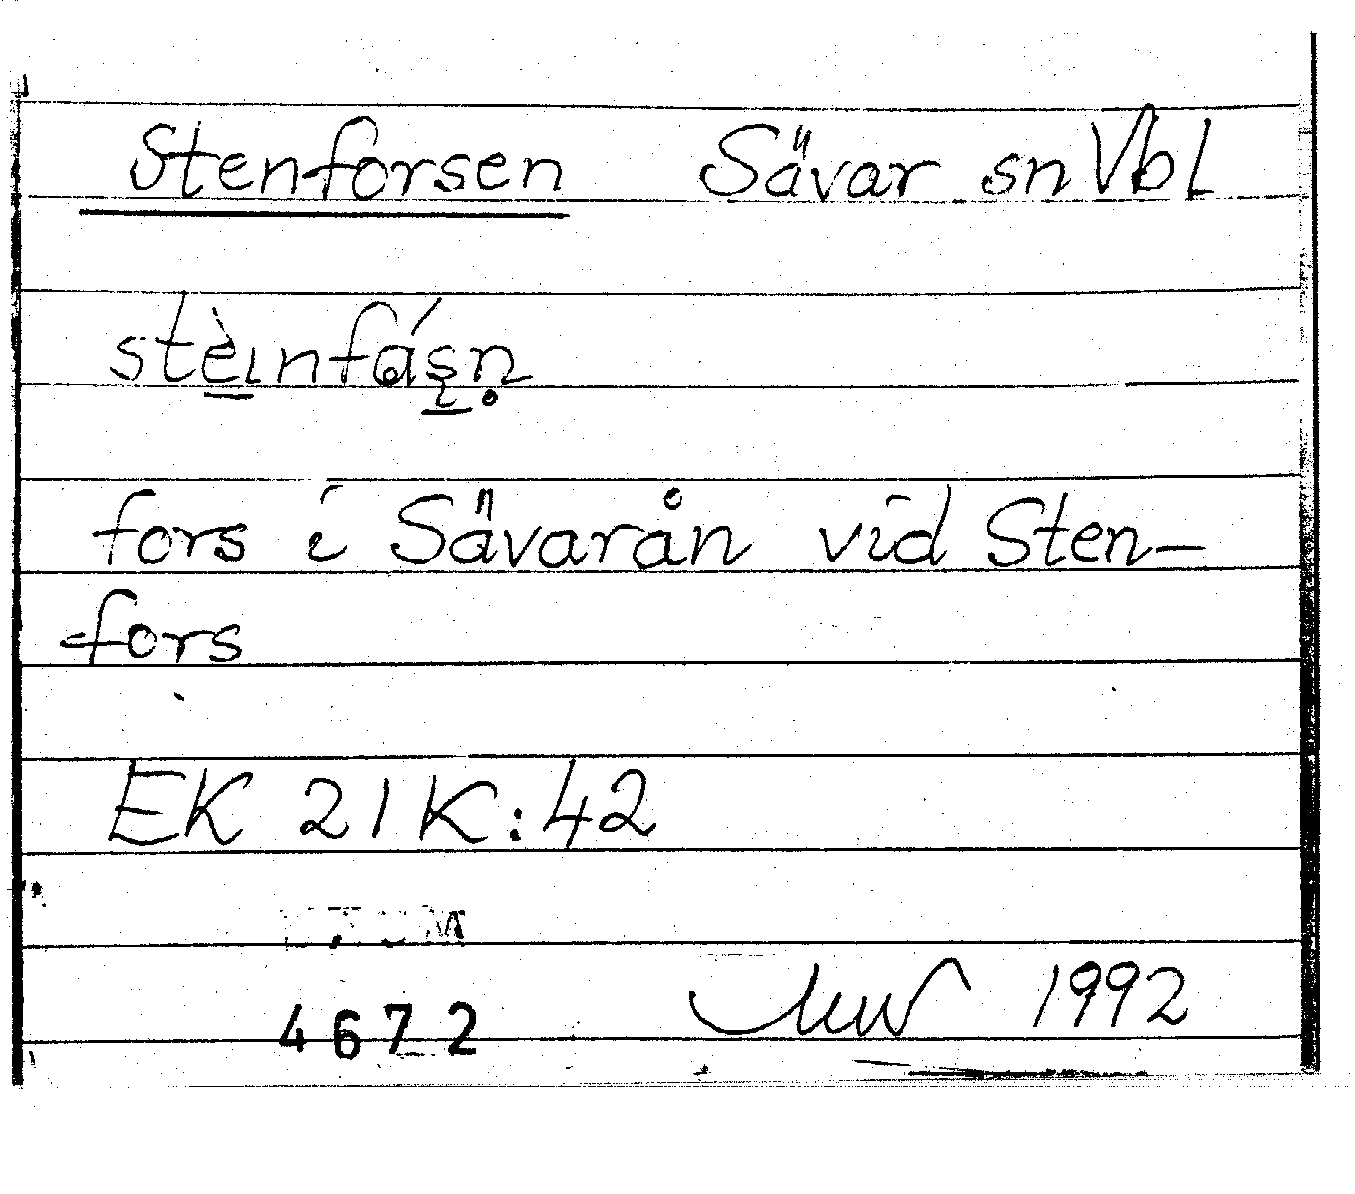 Stenforsen Sävar sn Vbl
stèınfåʹʂn̥
fors i Sävarån vid Sten-
fors
EK 21K:42
1992
4672